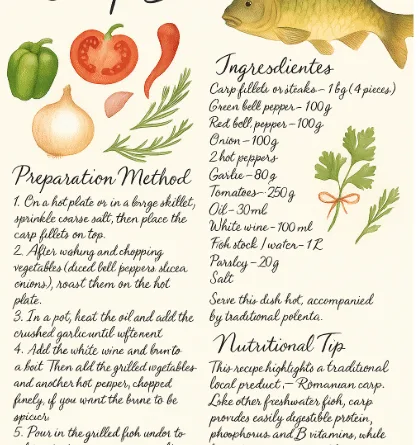 Preparation Method
1. On a hot plate or in a large skillet,
sprinkle coarse salt, then place the
carp fillets on top.
2. After wahing and chopping
vegetables (diced bell peppers slucea
onions), roast them on the hot
plate.
3. In a pot, heat the oil and add the
crushed garlic until
4. Add the white wine and
a boit Then add the grilled vegetables
and another hot pepper, chopped
finely, if you want the brune to be
spicier
5. Pour in the grilled fish undor to
Ingresdientes
Carp fillets or steaks – 1 bg (4 pieces)
Green bell pepper – 100g
Red boll pepper – 100g
Onion – 100g
2 hot peppers
Garlie – 80 g
Tomatoes – 250 g
Oil – 30 ml
White wine – 100 ml
Fish stock / water – 1 R
Parsley – 20g
Salt
Serve this dish hot, accompanied
by traditional polenta.
Nutritional Tip
This recipe highlights a traditional
local product, – Romanian carp.
Loke other freshwater fish, carp
provides easily digestible protein,
phosphorus and B vitamins, while